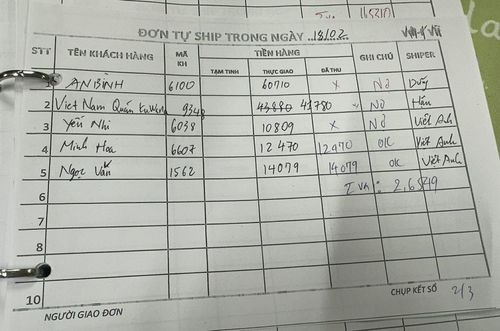 ĐƠN TỰ SHIP TRONG NGÀY 18/02
STT TÊN KHÁCH HÀNG MÃ KH TIỀN HÀNG GHI CHÚ SHIPER
TẠM TÍNH THỰC GIAO ĐÃ THU
1 AN BÌNH 6100 60710 x Nợ Duy
2 Việt Nam Quán 9348 43880 43780 Nợ Hân
3 Yến Nhi 6038 10809 x Nợ Việt Anh
4 Minh Hoa 6607 12470 12970 OK Việt Anh
5 Ngọc Vân 1562 14079 14079 OK Việt Anh
6
7
8
10
NGƯỜI GIAO ĐƠN CHỤP KẾT SỐ 2/3